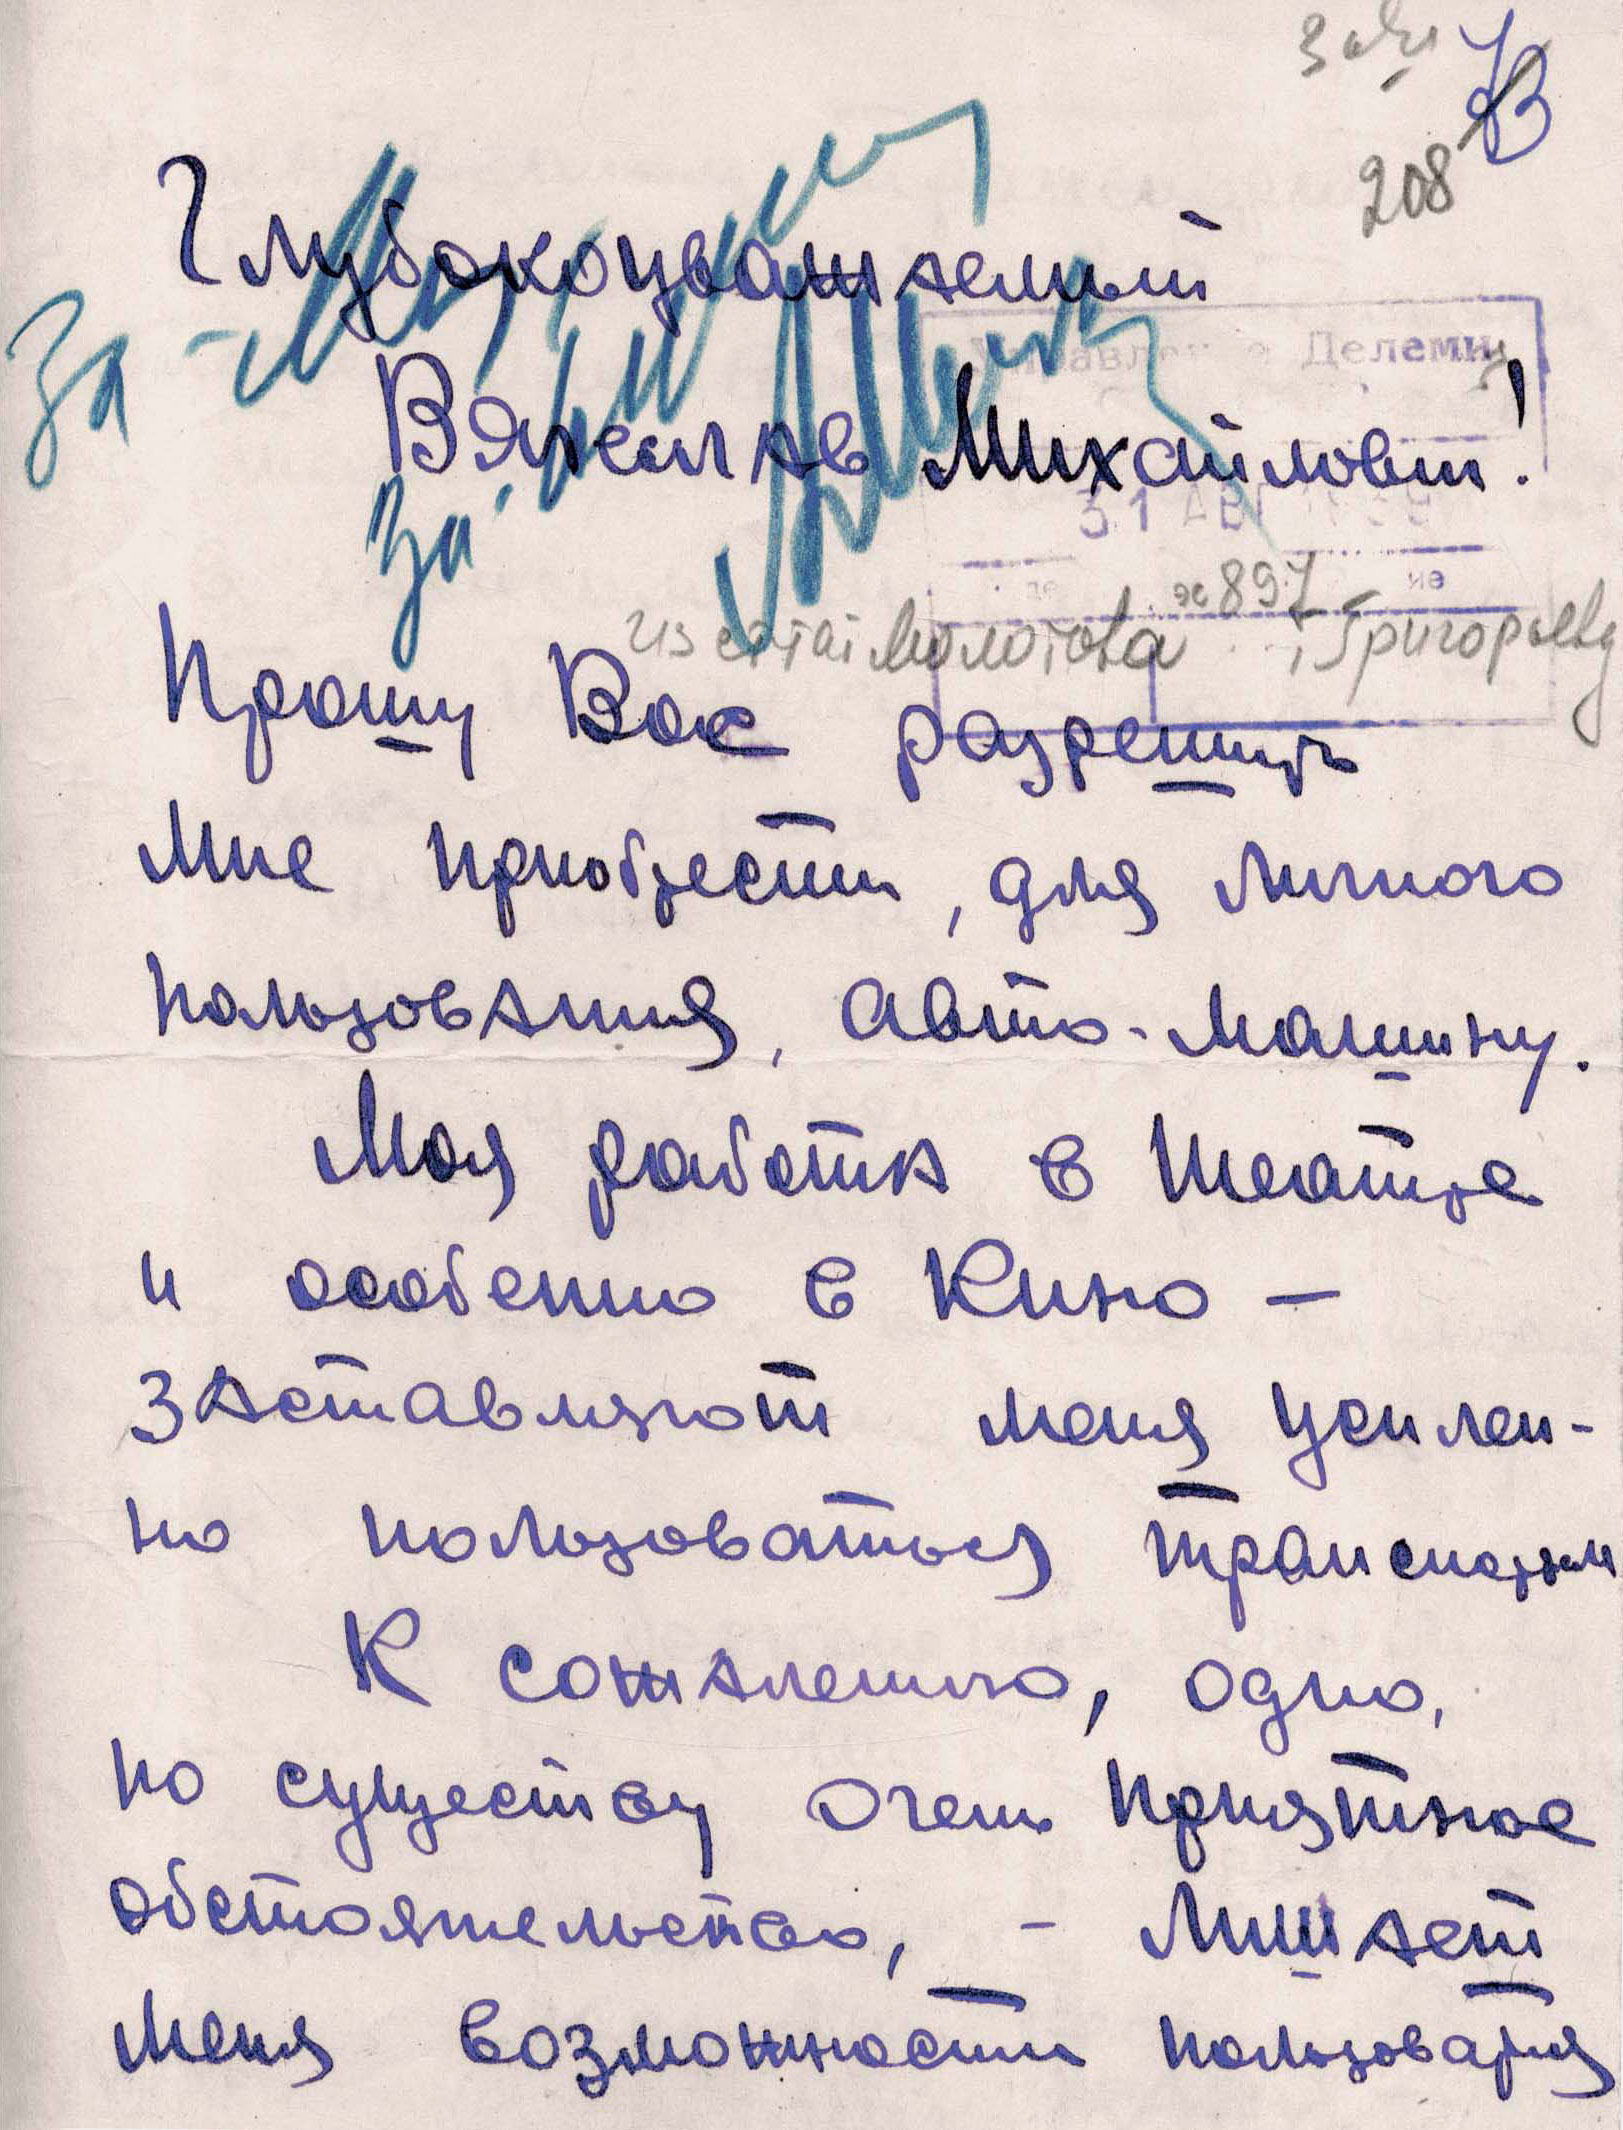 208
Глубокоуважаемый
Вячеслав Михайлович!
За
За
Делами
31 АВГ
897
Молотова Григорьеву
Прошу Вас разрешить
мне приобрести, для личного
пользования, авто-машину.
Моя работа в Театре
и особенно в Кино —
заставляют меня усилен-
но пользоваться транспортом
К сожалению, одно,
по существу очень приятное
обстоятельство, - лишает
меня возможности пользоваться